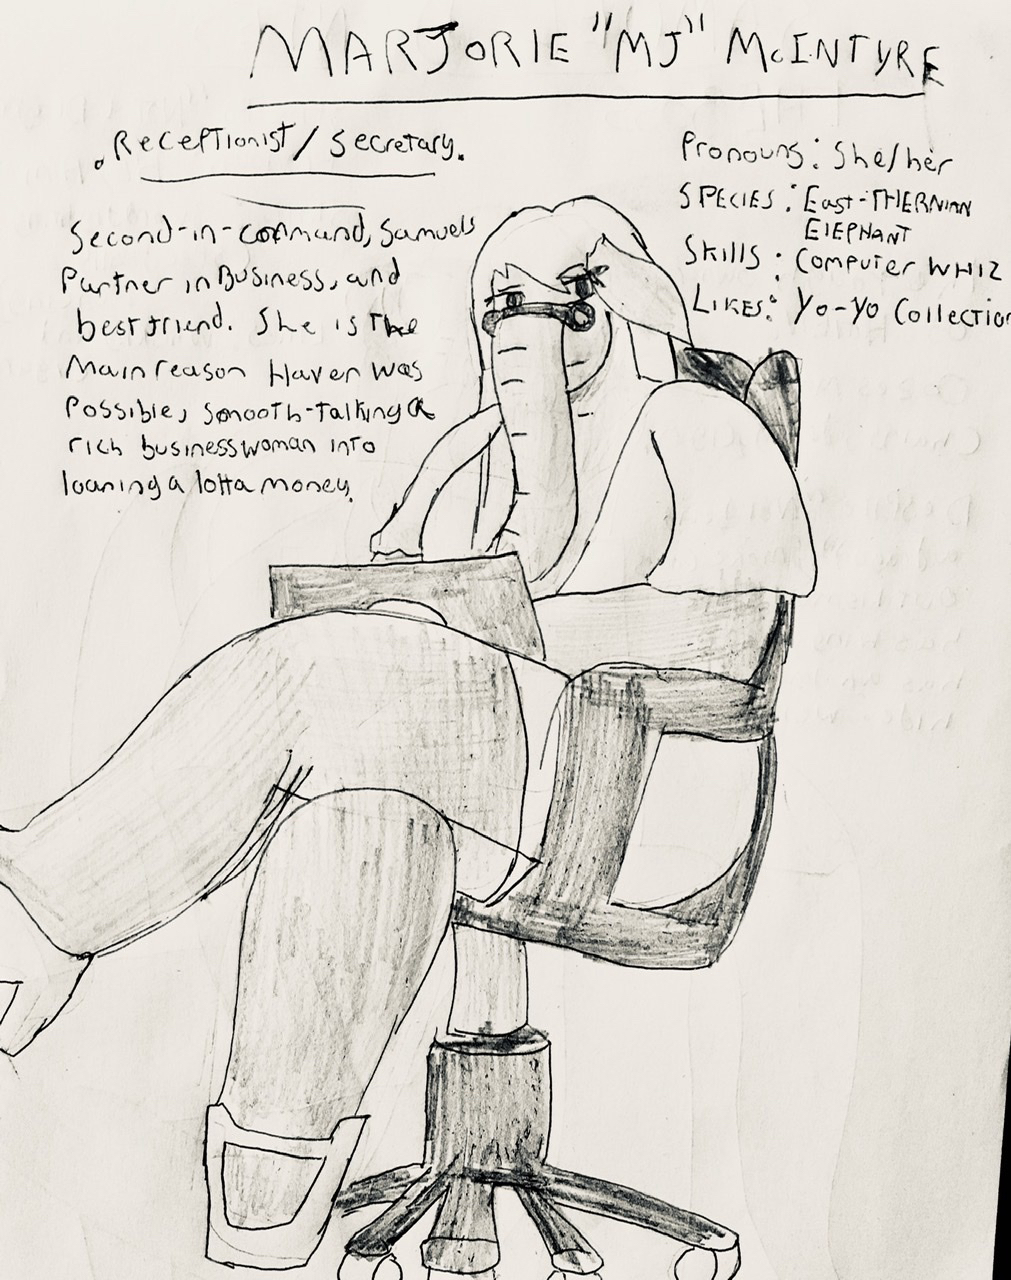 MARJORIE "MJ" McINTYRE
. Receptionist/Secretary.
Second-in-command, Samuels
Partner in Business, and
best friend. She is The
Main reason Haven was
Possible, smooth-talking a
rich businesswoman into
loaning a lotta money.
Pronouns: She/her
SPECIES: East-THERNIAN
ElEPHANT
Skills: Computer WHIZ
LIKES: Yo-Yo Collection